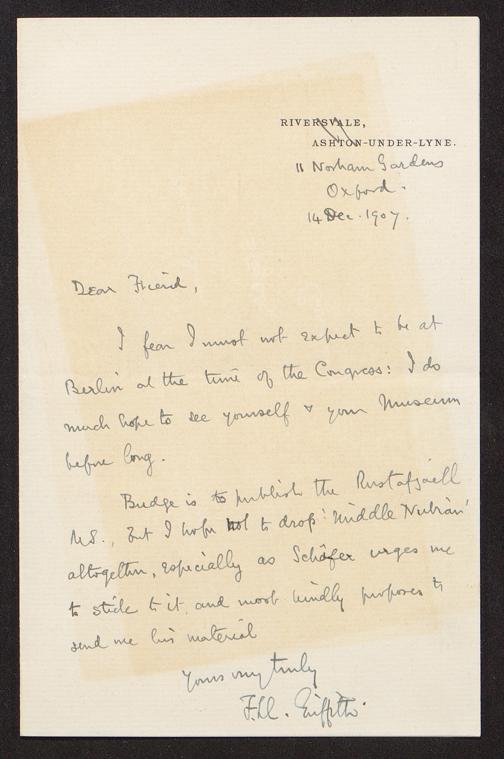 RIVERSVALE,
ASHTON-UNDER-LYNE.
11 Norham Gardens
Oxford.
14 Dec. 1907.
Dear Friend,
I fear I must not expect to be at
Berlin at the time of the Congress: I do
much hope to see yourself & your Museum
before long.
Budge is to publish the Rustafjaell
MS., but I hope not to drop 'Middle Nubian'
altogether, especially as Schäfer urges me
to stick to it, and most kindly proposes to
send me his material
Yours very truly
F. Ll. Griffith.